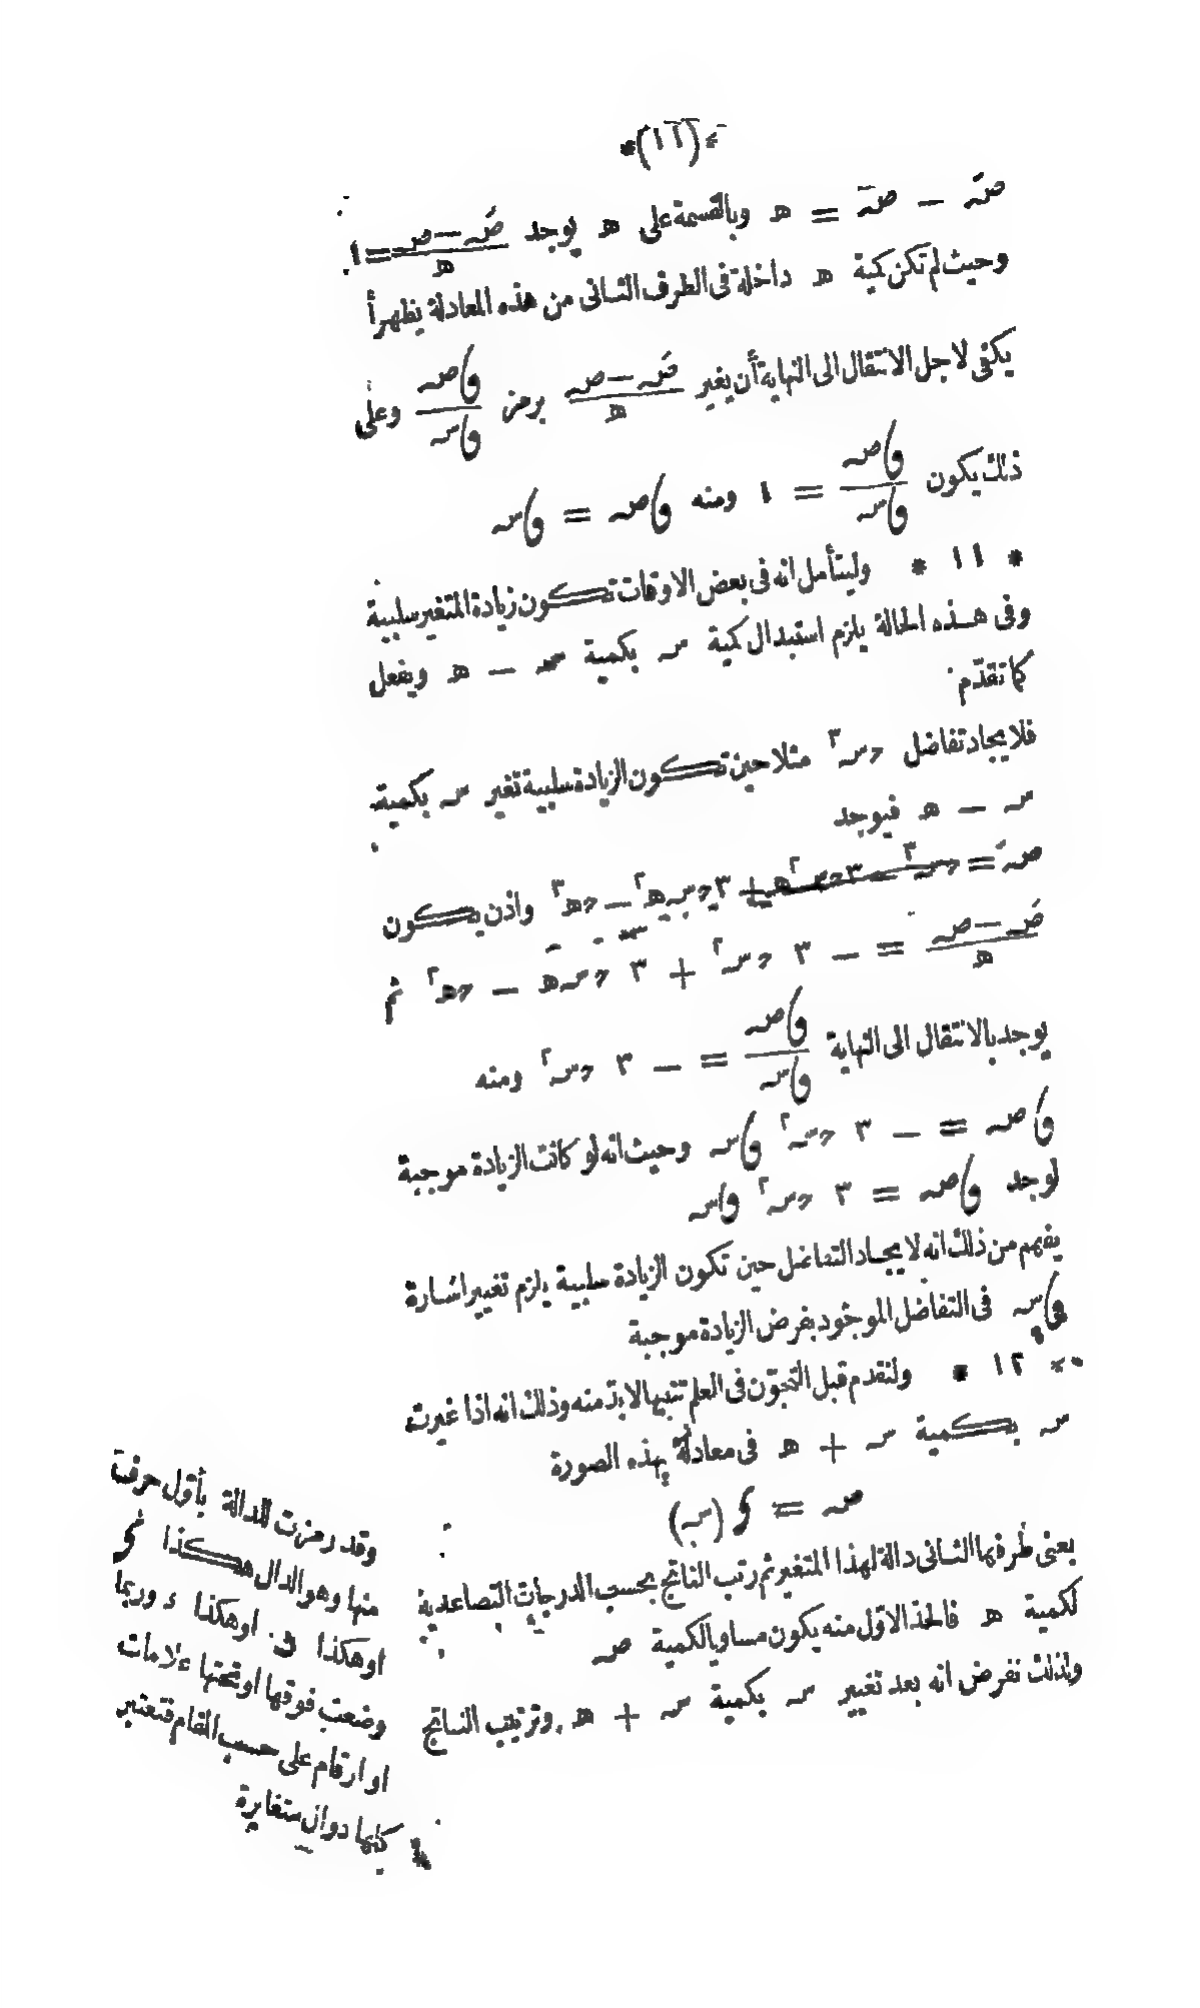 *(١٦)*
صَ − ص = ه وبالقسمة على ه يوجد (صَ − ص)/ه = ١
وحيث لم تكن كمية ه داخلة فى الطرف الثانى من هذه المعادلة يظهر أ
يكفى لاجل الانتقال الى النهاية أن يغير (صَ − ص)/ه برمز ءص/ءس وعلى
ذلك يكون ءص/ءس = ١ ومنه ءص = ءس
* ١١ * وليتأمل انه فى بعض الاوقات تكون زيادة المتغير سلبية
وفى هذه الحالة يلزم استبدال كمية س بكمية س − ه ويفعل
كما تقدّم
فلايجاد تفاضل حس٣ مثلا حين تكون الزيادة سلبية تغير س بكمية
س − ه فيوجد
صَ = حس٣ − ٣حس٢ه + ٣حسه٢ − حه٣ واذن يكون
(صَ − ص)/ه = − ٣ حس٢ + ٣ حسه − حه٢ ثم
يوجد بالانتقال الى النهاية ءص/ءس = − ٣ حس٢ ومنه
ءص = − ٣ حس٢ ءس وحيث انه لو كانت الزيادة موجبة
لوجد ءص = ٣ حس٢ ءس
يفهم من ذلك انه لايجاد التفاضل حين تكون الزيادة سلبية يلزم تغيير اشارة
ءس فى التفاضل الموجود بفرض الزيادة موجبة
* ١٢ * ولنقدم قبل التجوّن فى العلم تنبيها لابد منه وذلك انه اذا غيرت
س بكمية س + ه فى معادلة بهذه الصورة
ص = د (س)
بعنى طرفها الثانى دالة لهذا المتغير ثم رتب الناتج بحسب الدرجات التصاعدية
لكمية ه فالحد الاوّل منه يكون مساويا لكمية ص
ولذلك نفرض انه بعد تغيير س بكمية س + ه وترتيب الناتج
وقد رمزت للدالة بأوّل حرف
منها وهو الدال هكذا
اوهكذا اوهكذا ء وربما
وضعت فوقها او تحتها علامات
او ارقام على حسب المقام فتعتبر
كلها دوال متغايرة